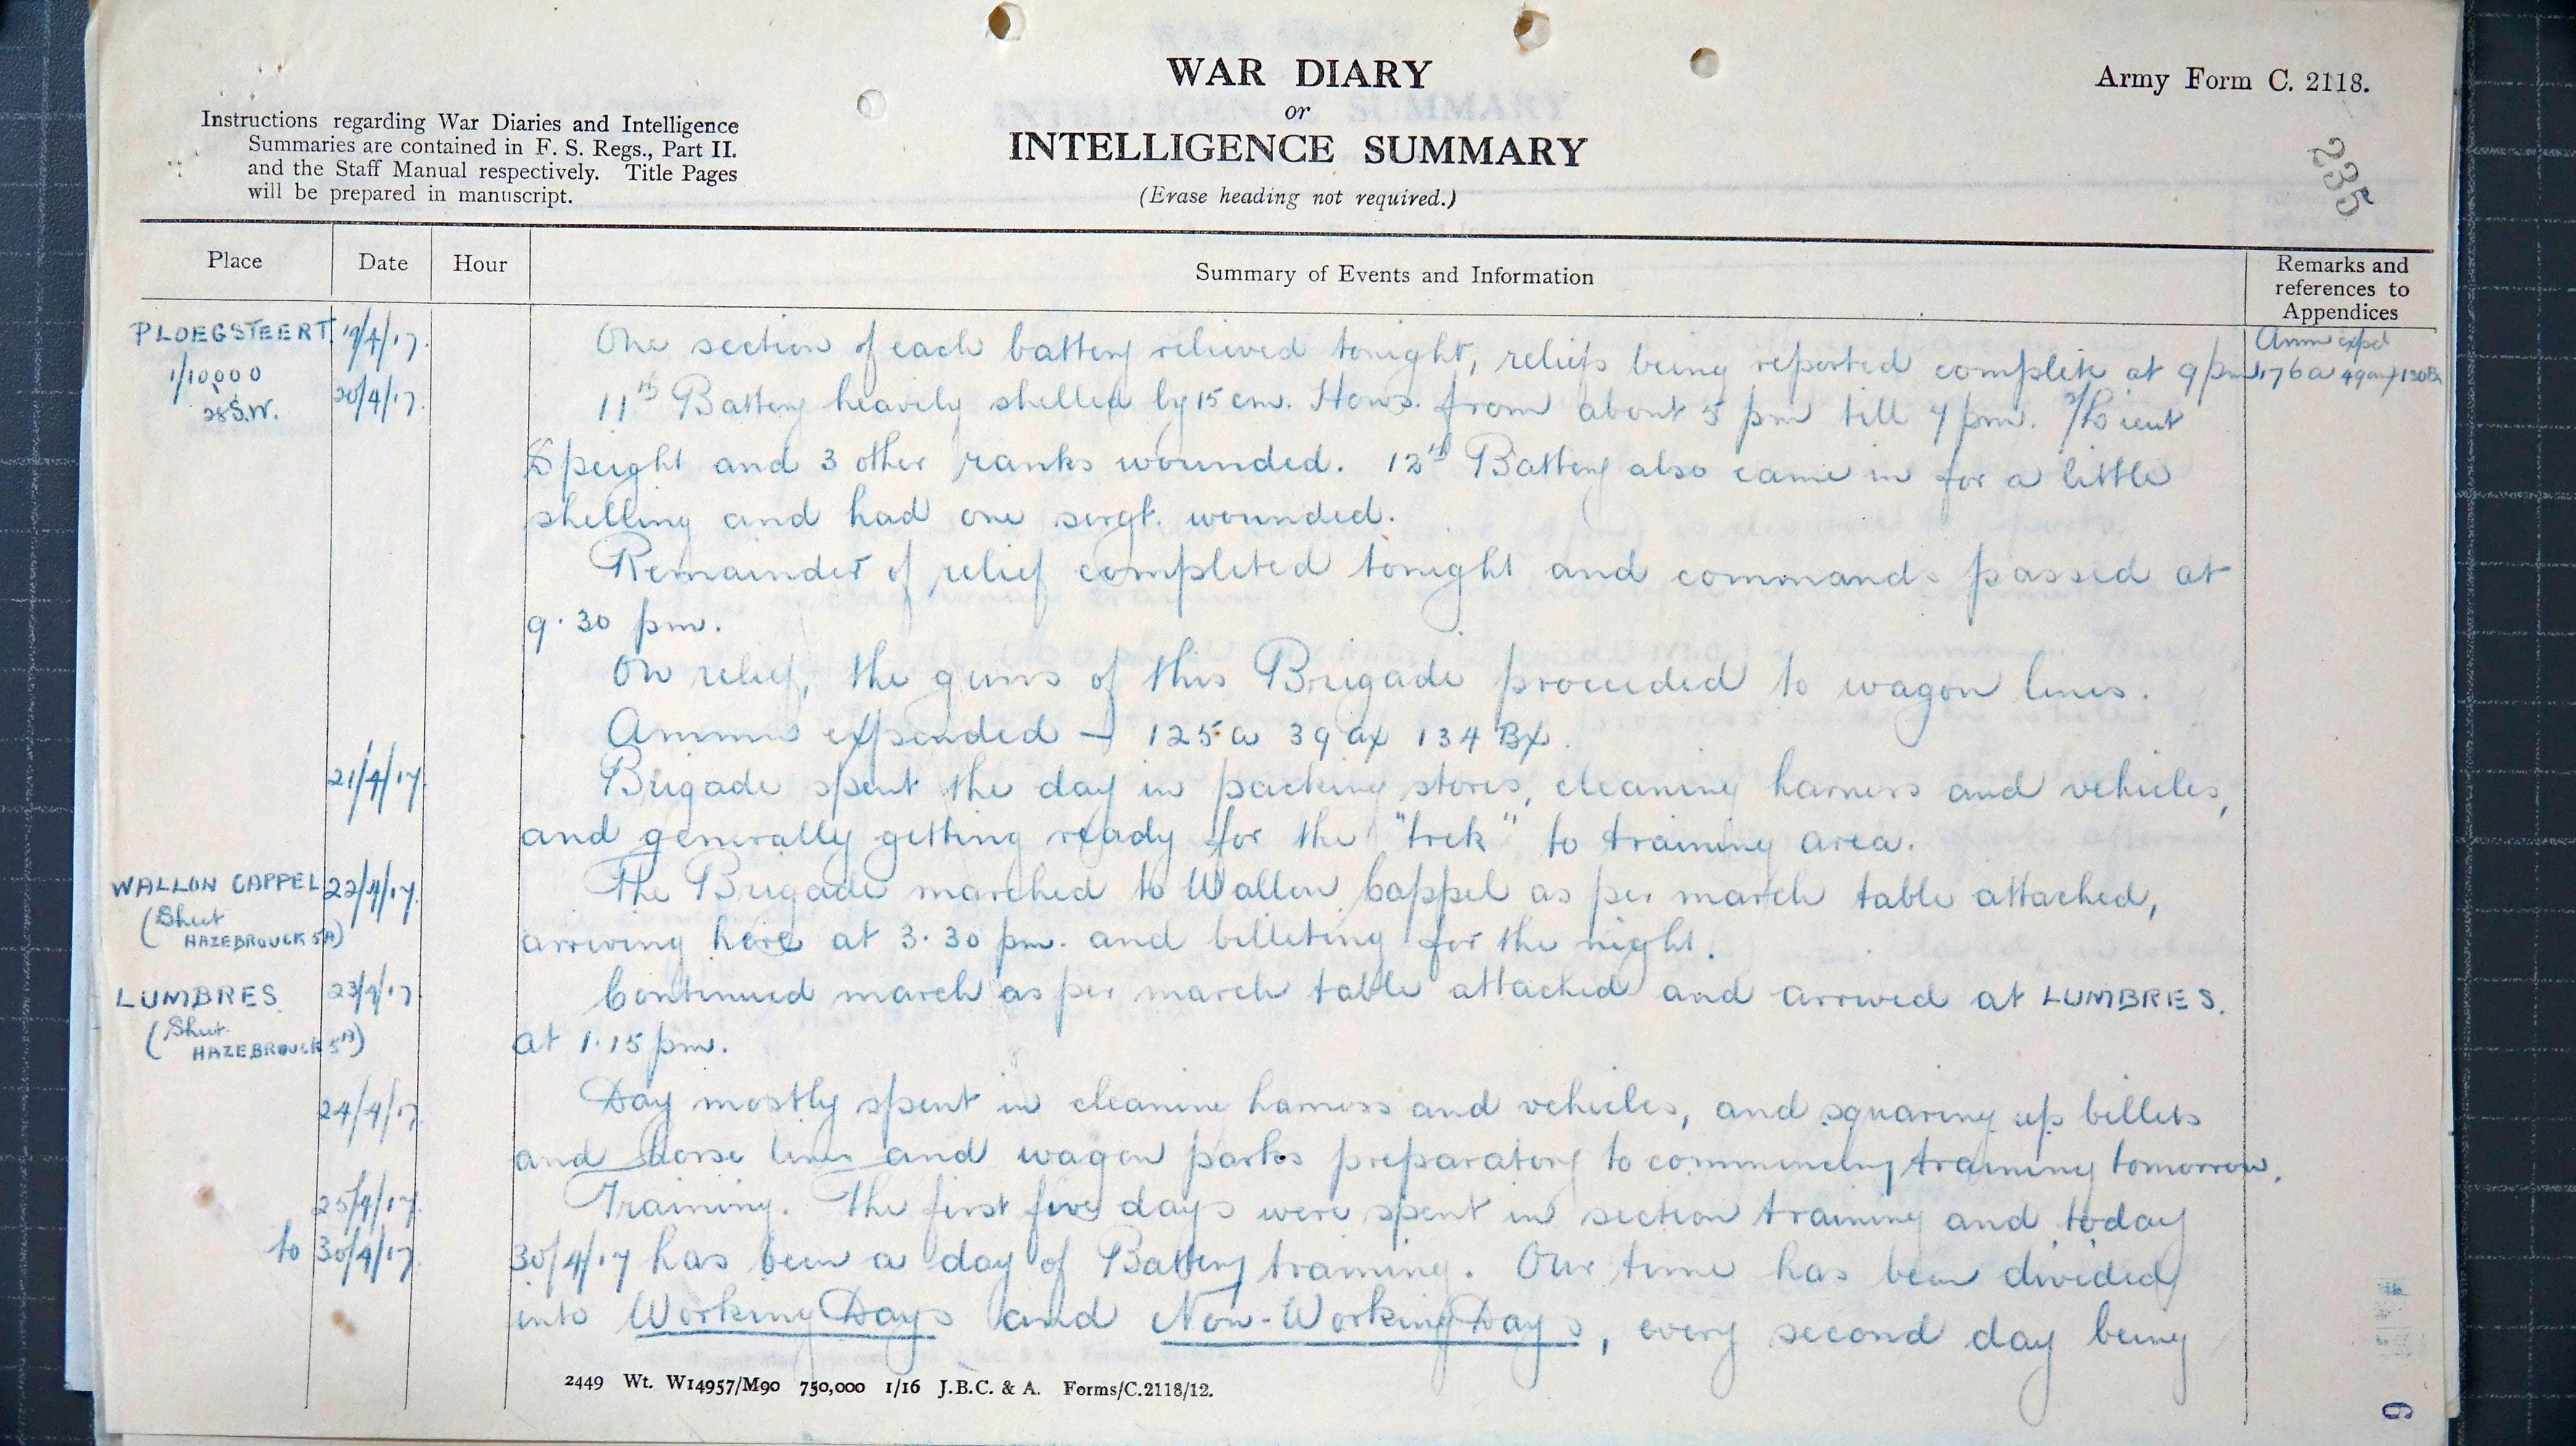 WAR DIARY
or
INTELLIGENCE SUMMARY
(Erase heading not required.)
Army Form C. 2118.
Instructions regarding War Diaries and Intelligence
Summaries are contained in F. S. Regs., Part II.
and the Staff Manual respectively. Title Pages
will be prepared in manuscript.
235
Place Date Hour Summary of Events and Information Remarks and
references to
Appendices
PLOEGSTEERT 19/4/17. One section of each battery relieved tonight, reliefs being reported complete at 9 pm Amm expd
1/10000
28 S.W. 20/4/17. 11th Battery heavily shelled by 15 cm. Hows. from about 5 pm till 7 pm. 2/Lieut
Speight and 3 other ranks wounded. 12th Battery also came in for a little
shelling and had one sergt. wounded.
Remainder of relief completed tonight and commands passed at
9.30 pm.
On relief, the guns of this Brigade proceeded to wagon lines.
Ammn expended – 125 a 39 ax 134 Bx.
21/4/17. Brigade spent the day in packing stores, cleaning harness and vehicles,
and generally getting ready for the "trek" to training area.
WALLON CAPPEL 22/4/17. The Brigade marched to Wallon Cappel as per march table attached,
(Sheet
HAZEBROUCK 5A) arriving here at 3.30 pm. and billeting for the night.
LUMBRES 23/4/17 Continued march as per march table attached and arrived at LUMBRES.
(Sheet
HAZEBROUCK 5A) at 1.15 pm.
24/4/17. Day mostly spent in cleaning harness and vehicles, and squaring up billets
and horse lines and wagon parks preparatory to commencing training tomorrow.
25/4/17. Training. The first five days were spent in section training and today
to 30/4/17. 30/4/17 has been a day of Battery training. Our time has been divided
into Working Days and Non-Working Days, every second day being
2449 Wt. W14957/M90 750,000 1/16 J.B.C. & A. Forms/C.2118/12.